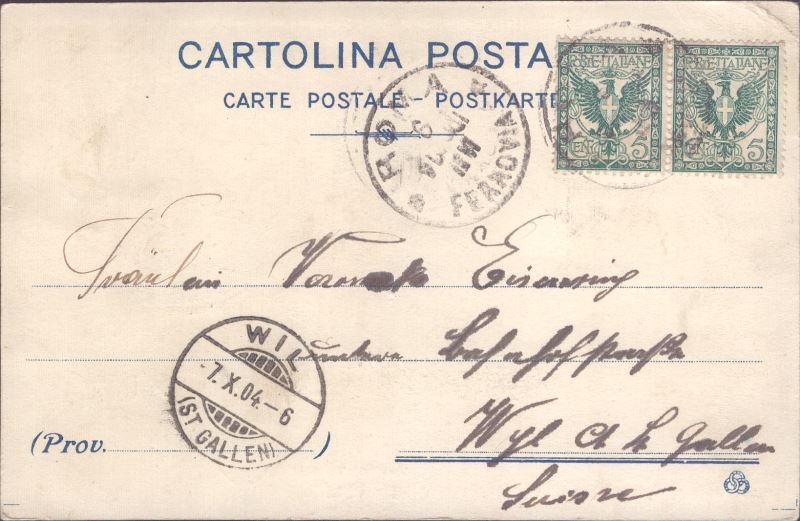 CARTOLINA POSTA
CARTE POSTALE - POSTKARTE
POSTE ITALIANE POSTE ITALIANE
CENT. 5 5
ROMA FERROVIA
04
Fräulein Veronika
untere Bahnhofstraße
WIL
-7.X.04.-6
(ST GALLEN)
(Prov. )
Wyl Ct St Gallen
Suisse